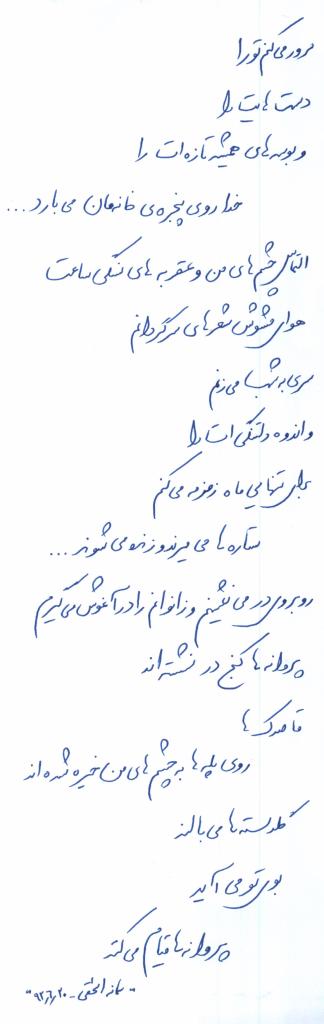 مرور می‌کنم تو را
دست هایت را
و بوسه‌های همیشه تازه‌ات را
خدا روی پنجره‌ی خانه‌مان می‌بارد...
التماس چشم‌های من و عقربه‌های سنگی ساعت
هوای مشوش شعرهای سرگردانم
سری به شب می‌زنم
و اندوه دلتنگی‌ات را
برای تنهایی ماه زمزمه می‌کنم
ستاره‌ها می‌میرند و زنده می‌شوند...
روبروی در می‌نشینم و زانوانم را در آغوش می‌گیرم
پروانه‌ها کنج در نشسته‌اند
قاصدک‌ها
روی پله‌ها به چشم‌های من خیره شده‌اند
گلدسته‌ها می‌بالند
بوی تو می‌آید
پروانه‌ها قیام می‌کنند
۹۲/۶/۲۰